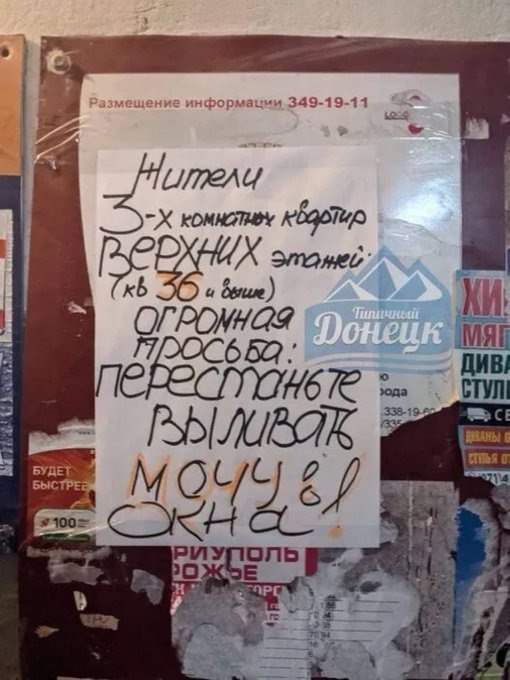 Размещение информации 349-19-11
LOGO
Жители
3-х комнатных квартир
ВЕРХНИХ этажей
(кв 36 и выше)
ОГРОМНАЯ
ПРОСЬБА:
ПЕРЕСТАНЬТЕ
ВЫЛИВАТЬ
МОЧУ в
ОКНА!
Типичный
Донецк
ХИ
МЯГ
ДИВА
СТУЛ
СВ
ДИВАНЫ О
СТУЛЬЯ ОТ
ю
рода
.338-19-60
/335
БУДЕТ
БЫСТРЕЕ
100
РИУПОЛЬ
РОЖЬЕ